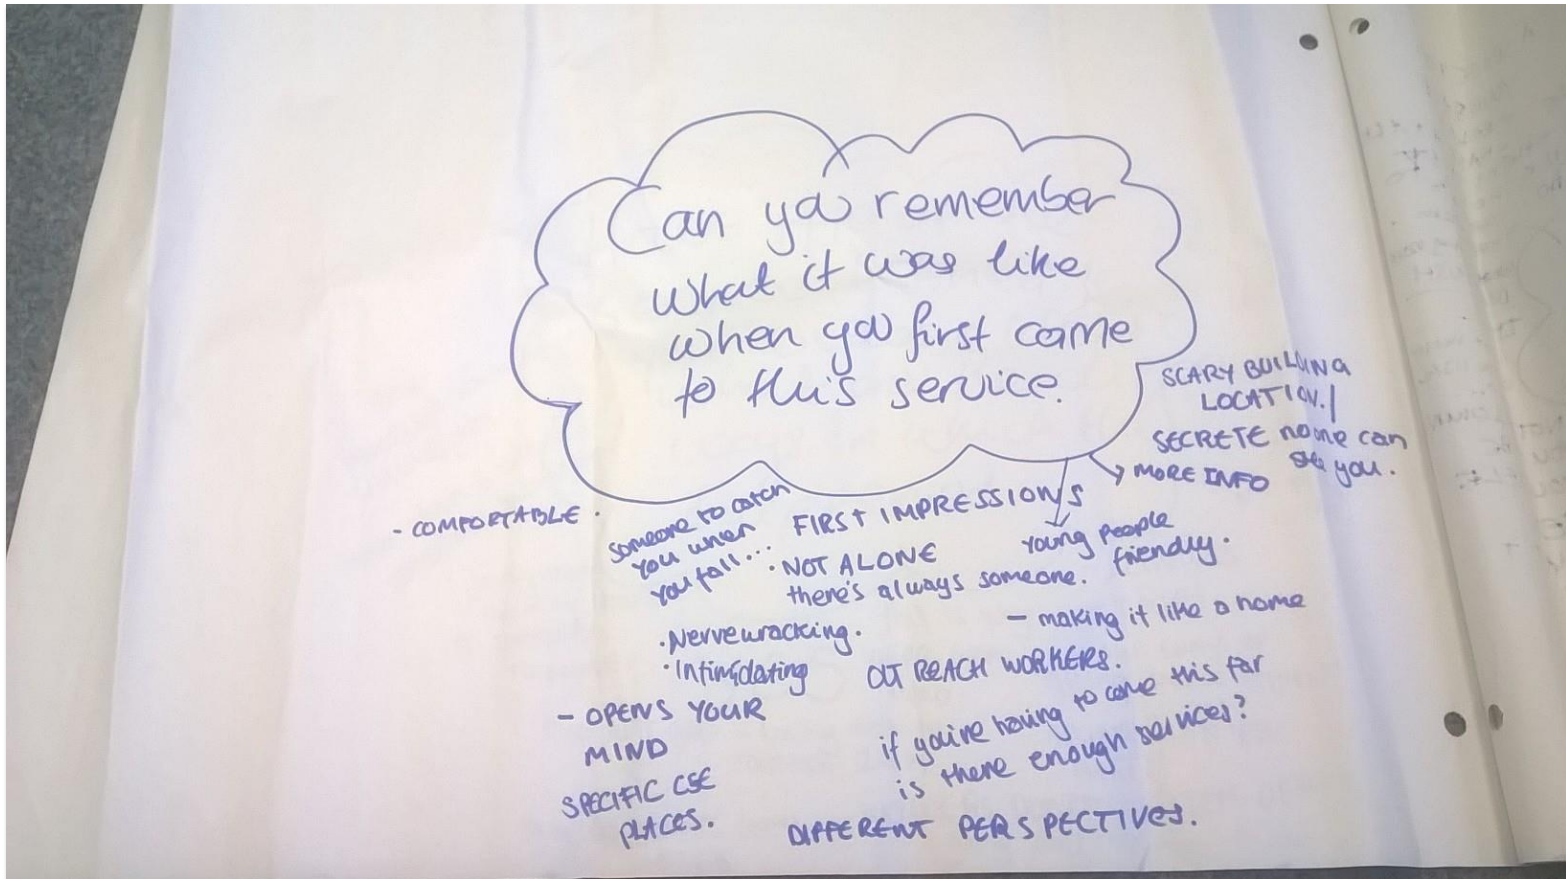 Can you remember
what it was like
when you first came
to this service.
SCARY BUILDING
LOCATION./
SECRETE no one can
see you.
MORE INFO
- COMFORTABLE.
someone to catch
you when
you fall...
FIRST IMPRESSIONS
Young people
friendly.
· NOT ALONE
there's always someone.
- making it like a home
· Nervewracking.
· Intimidating
OUT REACH WORKERS.
- OPENS YOUR
MIND
if you're having to come this far
is there enough services?
SPECIFIC CSE
PLACES.
DIFFERENT PERSPECTIVES.